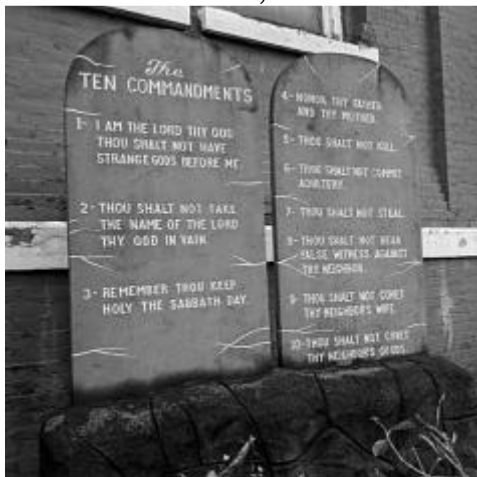 The
TEN COMMANDMENTS
1- I AM THE LORD THY GOD
THOU SHALT NOT HAVE
STRANGE GODS BEFORE ME
2- THOU SHALT NOT TAKE
THE NAME OF THE LORD
THY GOD IN VAIN.
3- REMEMBER THOU KEEP
HOLY THE SABBATH DAY.
4- HONOR THY FATHER
AND THY MOTHER.
5- THOU SHALT NOT KILL.
6- THOU SHALT NOT COMMIT
ADULTERY.
7- THOU SHALT NOT STEAL.
8- THOU SHALT NOT BEAR
FALSE WITNESS AGAINST
THY NEIGHBOR.
9- THOU SHALT NOT COVET
THY NEIGHBOR'S WIFE.
10- THOU SHALT NOT COVET
THY NEIGHBOR'S GOODS.